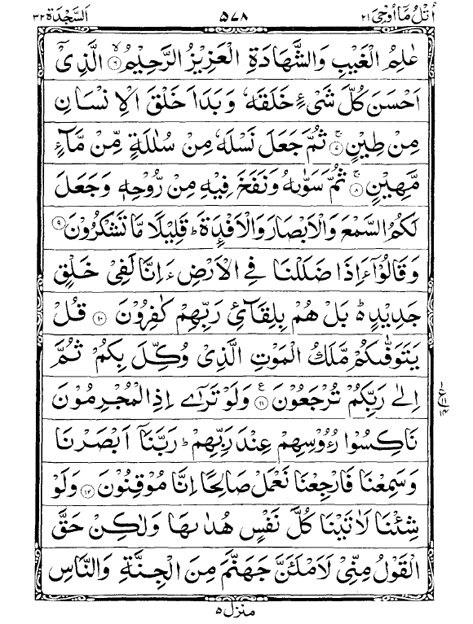 اَلسَّجْدَة ٣٢
٥٧٨
اُتْلُ مَآ اُوْحِیَ ٢١
عٰلِمُ الْغَیْبِ وَالشَّهَادَةِ الْعَزِیْزُ الرَّحِیْمُ ۙ٦ الَّذِیْۤ
اَحْسَنَ كُلَّ شَیْءٍ خَلَقَهٗ وَبَدَاَ خَلْقَ الْاِنْسَانِ
مِنْ طِیْنٍ ۚ٧ ثُمَّ جَعَلَ نَسْلَهٗ مِنْ سُلٰلَةٍ مِّنْ مَّآءٍ
مَّهِیْنٍ ۚ٨ ثُمَّ سَوّٰىهُ وَنَفَخَ فِیْهِ مِنْ رُّوْحِهٖ وَجَعَلَ
لَكُمُ السَّمْعَ وَالْاَبْصَارَ وَالْاَفْـِٕدَةَ ؕ قَلِیْلًا مَّا تَشْكُرُوْنَ ٩
وَقَالُوْۤا ءَاِذَا ضَلَلْنَا فِی الْاَرْضِ ءَاِنَّا لَفِیْ خَلْقٍ
جَدِیْدٍ ؕ بَلْ هُمْ بِلِقَآئِ رَبِّهِمْ كٰفِرُوْنَ ١٠ قُلْ
یَتَوَفّٰىكُمْ مَّلَكُ الْمَوْتِ الَّذِیْ وُكِّلَ بِكُمْ ثُمَّ
اِلٰی رَبِّكُمْ تُرْجَعُوْنَ ١١ ع وَلَوْ تَرٰۤی اِذِ الْمُجْرِمُوْنَ
نَاكِسُوْا رُءُوْسِهِمْ عِنْدَ رَبِّهِمْ ؕ رَبَّنَاۤ اَبْصَرْنَا
وَسَمِعْنَا فَارْجِعْنَا نَعْمَلْ صَالِحًا اِنَّا مُوْقِنُوْنَ ١٢ وَلَوْ
شِئْنَا لَاٰتَیْنَا كُلَّ نَفْسٍ هُدٰىهَا وَلٰكِنْ حَقَّ
الْقَوْلُ مِنِّیْ لَاَمْلَـَٔنَّ جَهَنَّمَ مِنَ الْجِنَّةِ وَالنَّاسِ
منزل ٥